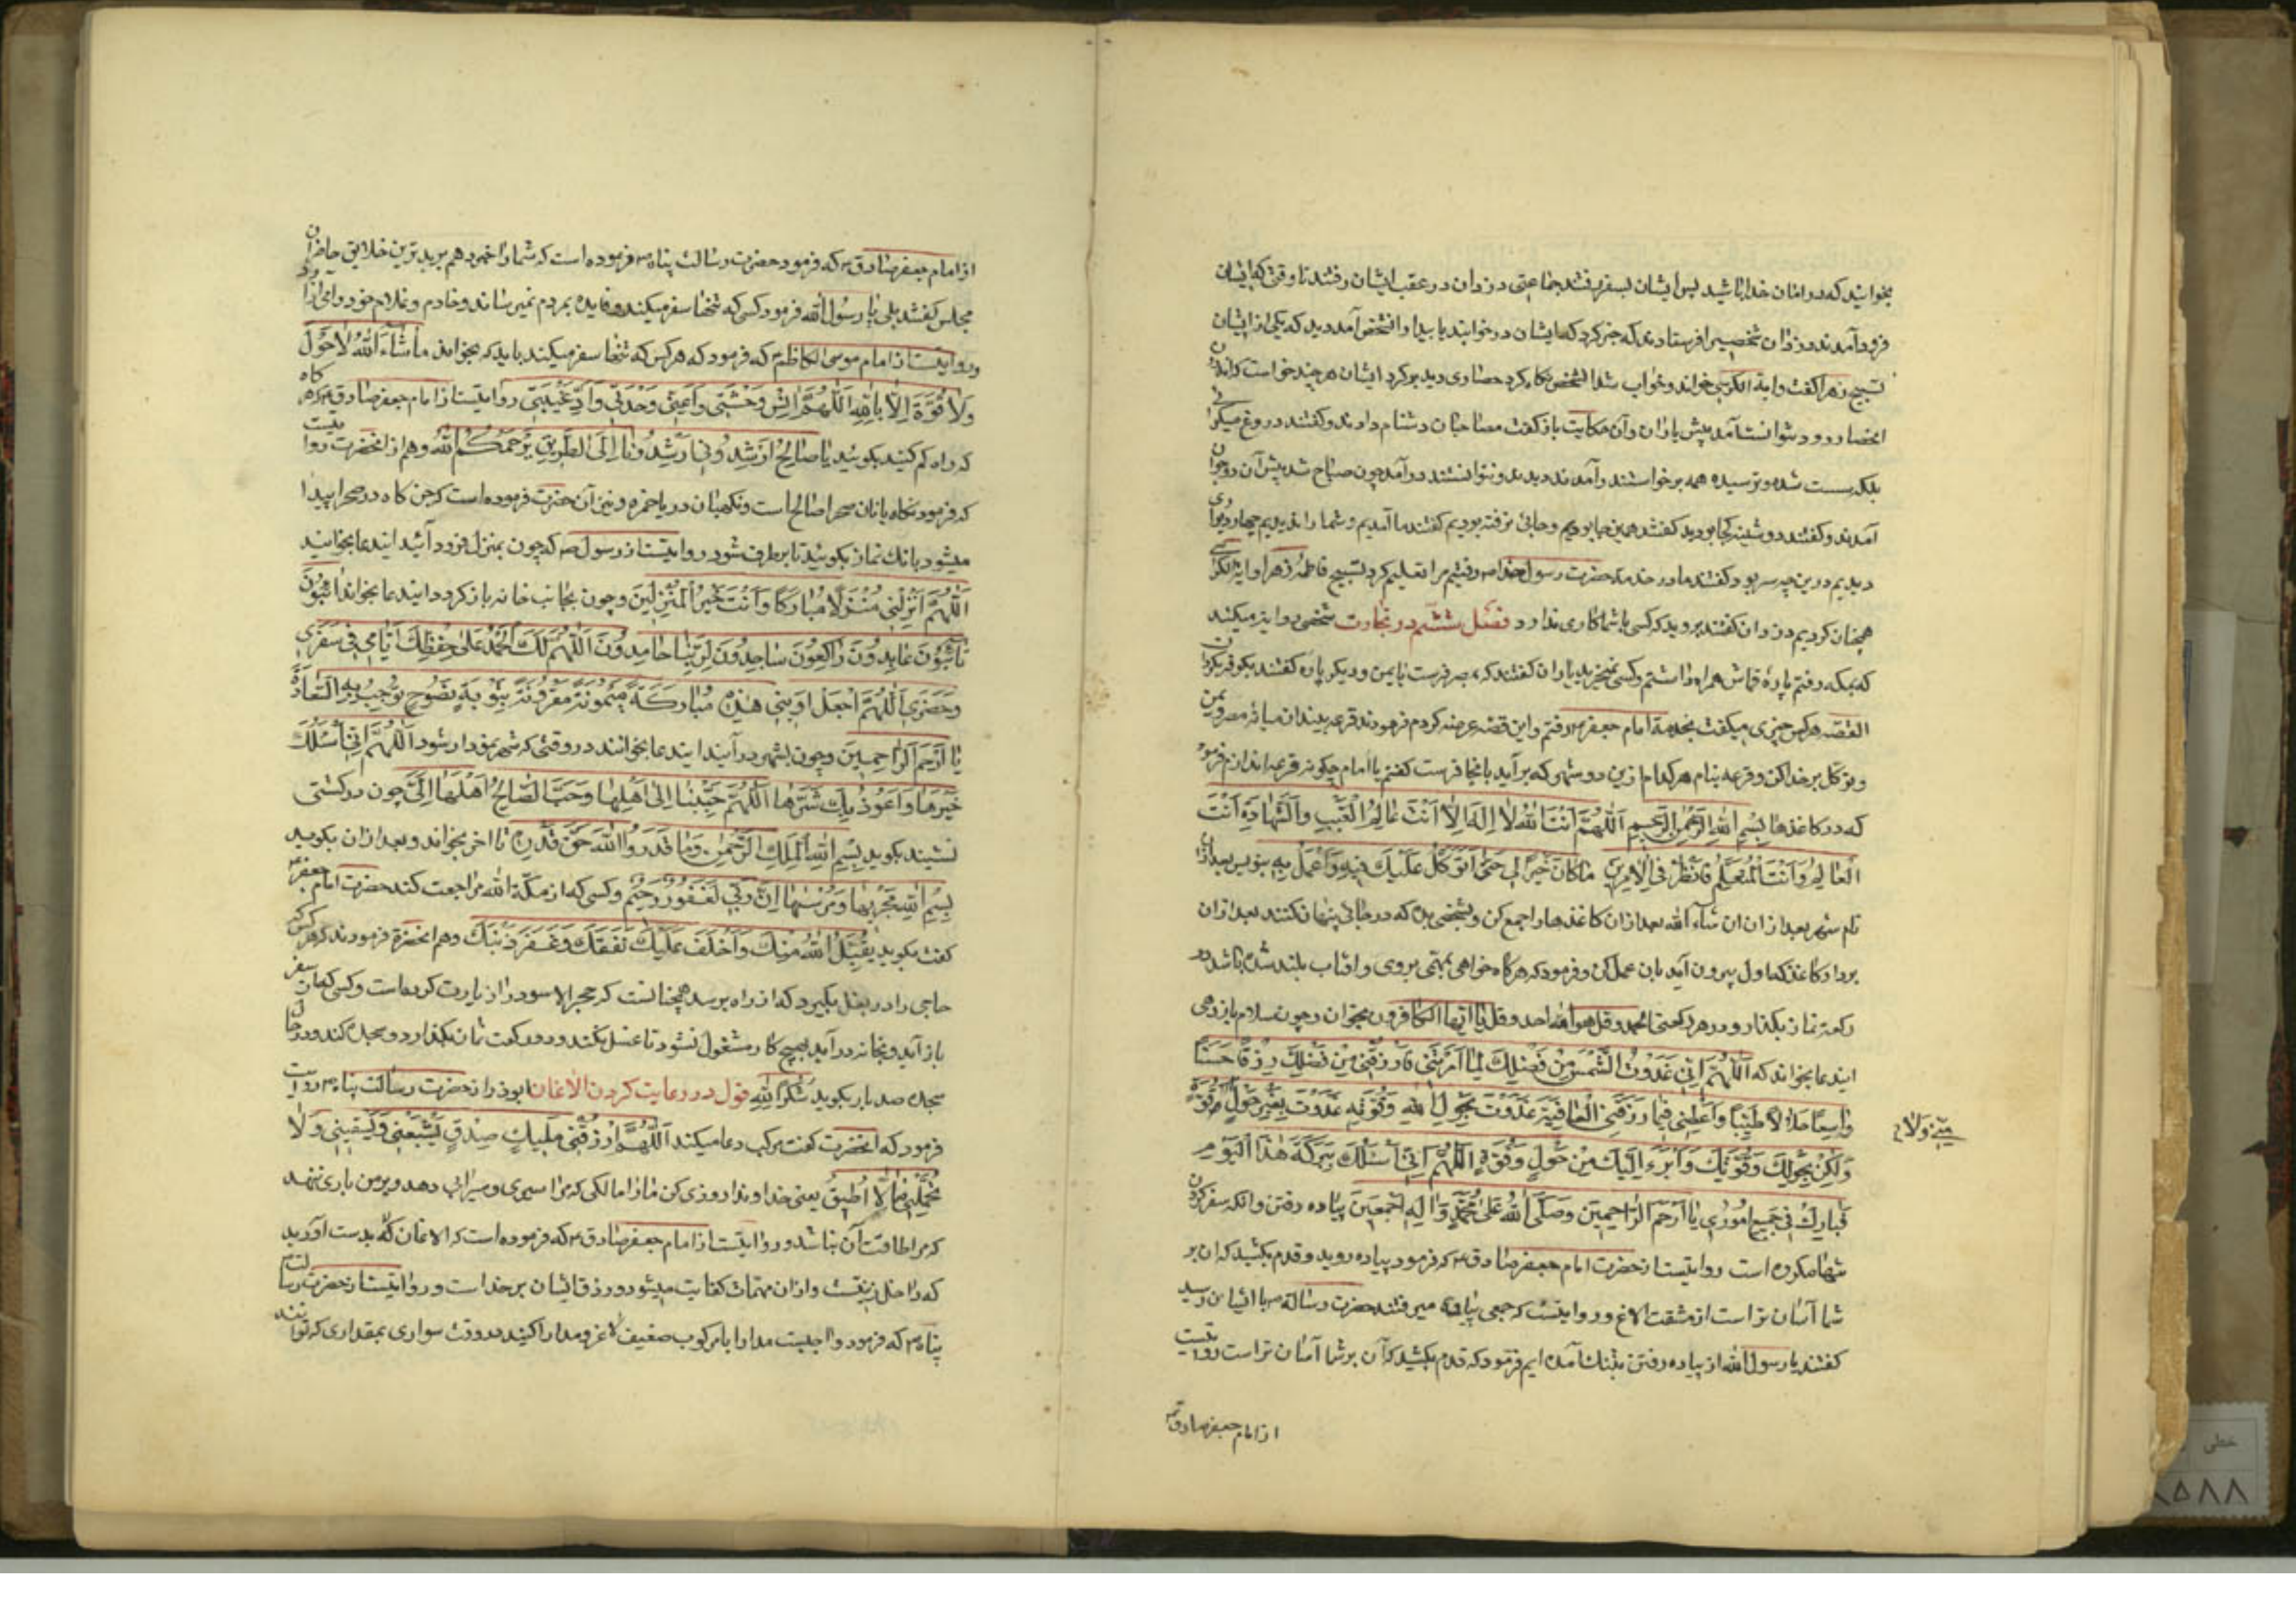 بخوانید که در امان خدا باشید پس ایشان بسفر رفتند جماعتی دزدان در عقب ایشان رفتند تا وقتی که ایشان
فرود آمدند دزدان شخصی را فرستادند که خبر کرد که ایشان در خوابند یا بیدار آن شخص آمد دید که یکی از ایشان
تسبیح زهرا گفت و ایة الکرسی خواند و خواب شد آن شخص نگاه کرد حصاری دید بر گرد ایشان هر چند خواست که اندرون
آنحصار رود نتوانست آمد پیش یاران و آن حکایت باز گفت مصاحبان دشنام دادند و گفتند دروغ میگوئی
بلکه سست شده و ترسیده همه برخواستند و آمدند و دیدند و نتوانستند درآمد چون صباح شد پیش آن دو جوان
آمدند و گفتند دوشینه کجا بودید گفتند همین جا بودیم و جائی نرفته بودیم گفتند ما آمدیم و شما را ندیدیم چهار دیواری
دیدیم درین چه سر بود گفتند ما در خدمة حضرت رسول خدا ص رفتیم مرا تعلیم کرد تسبیح فاطمۀ زهرا و ایة الکرسی
همچنان کردیم دزدان گفتند بروید که کسی با شما کاری ندارد فصل ششم در تجارت شخصی روایة میکند
که بمکه رفتم پارۀ قماش همراه داشتم و کسی نمیخرید یاران گفتند که بمصر فرست یا یمن و دیگر پاره گفتند بکوفه
القصه هر کس چیزی میگفت بخدمة امام جعفر ع رفتم و این قصه عرضه کردم فرمودند قرعه بیندازن میانۀ مصر و یمن
و توکل بر خدا کن و قرعه بنام هر کدام ازین دو شهر که بر آید بانجا فرست گفتم یا امام چگونه قرعه اندازم فرمود
که در کاغذها بِسْمِ اللهِ الرَّحْمٰنِ الرَّحِیمِ اَللّٰهُمَّ اَنْتَ اللهُ لا اِلهَ اِلاّ اَنْتَ عالِمُ الْغَیْبِ وَالشَّهادَةِ اَنْتَ
الْعالِمُ وَاَنَا الْمُتَعَلِّمُ فَانْظُرْ فی الْاَمْرَیْنِ ما کانَ خَیْراً لی حَتّی اَتَوَکَّلَ عَلَیْكَ فیهِ وَاَعْمَلَ بِهِ بنویس بعد ازان
نام شهر بعد ازان ان شاء الله بعد ازان کاغذها را جمع کن و بشخصی بده که در جائی پنهان کنند بعد ازان
بردار کاغذ که اول بیرون آید بان عمل کن و فرمود که هر گاه خواهی بمهمی بروی و آفتاب بلند شده باشد دو
رکعة نماز بگذار و در هر رکعتی الحمد و قل هو الله احد و قل یا ایها الکافرون بخوان و چون سلام باز دهی
ایندعا بخواند که اَللّٰهُمَّ اِنّی غَدَوْتُ اَلْتَمِسُ مِنْ فَضْلِكَ کَما اَمَرْتَنی فَارْزُقْنی مِنْ فَضْلِكَ رِزْقاً حَسَناً
واسِعاً حَلالاً طَیِّباً وَاَعْطِنی فیما رَزَقْتَنی الْعافِیَةَ غَدَوْتُ بِحَوْلِ اللهِ وَقُوَّتِهِ غَدَوْتُ بِغَیْرِ حَوْلٍ قُوَّةٍ
منّی وَلا
وَلٰکِنْ بِحَوْلِكَ وَقُوَّتِكَ وَاَبْرَءُ اِلَیْكَ مِنْ حَوْلٍ وَقُوَّةٍ اَللّٰهُمَّ اِنّی اَسْئَلُكَ بَرَکَةَ هٰذَا الْیَوْمِ
فَبارِكْ فی جَمیعِ اُمُوری یا اَرْحَمَ الرّاحِمینَ وَصَلَّی اللهُ عَلی مُحَمَّدٍ وَآلِهِ اَجْمَعینَ پیاده رفتن و الکه سفر کردن
تنها مکروه است روایتست از حضرت امام جعفر صادق ع که فرمود پیاده روید و قدم بکشید که ان بر
شما آسان تر است از مشقت الاغ و روایتست که جمعی پیاده میرفتند حضرت رسالة ص با ایشان رسید
گفتند یا رسول الله از پیاده رفتن بتنك آمده ایم فرمود که قدم بکشید که آن بر شما آسان تر است روایتست
از امام جعفر صادق ع
از امام جعفر صادق ع که فرمود حضرت رسالت پناه ص فرموده است که شما را خبر دهم ببدترین خلایق حاضران
مجلس گفتند بلی یا رسول الله فرمود کسی که تنها سفر میکند و فایده بمردم نمیرساند و خادم و غلام خود را می آزارد
و روایتست از امام موسی الکاظم ع که فرمود که هر کس که تنها سفر میکند باید که بخواند ما شاءَ اللهُ لا حَوْلَ
وَلا قُوَّةَ اِلاّ بِاللهِ اَللّٰهُمَّ اٰنِسْ وَحْشَتی وَاَعِنّی وَحْدَتی وَاَدِّ غَیْبَتی روایتست از امام جعفر صادق ع هر گاه
که راه گم کنید بگوئید یا صالِحُ اَرْشِدُونی اَرْشِدُونا اِلَی الطَّریقِ یَرْحَمُکُمُ اللهُ و هم از انحضرت روایتست
که فرمود نگاه بانان صحرا صالح است و نگهبان دریا حمزه و نیز آن حضرت فرموده است که جن گاه در صحرا پیدا
میشود بانك نماز بگوئید تا برطرف شود روایتست از رسول ص که چون بمنزل فرود آئید ایندعا بخوانید
اَللّٰهُمَّ اَنْزِلْنی مُنْزَلاً مُبارَکاً وَاَنْتَ خَیْرُ الْمُنْزِلینَ و چون بجانب خانه باز گردد ایندعا بخواند اٰئِبُونَ
تائِبُونَ عابِدُونَ راکِعُونَ ساجِدُونَ لِرَبِّنا حامِدُونَ اَللّٰهُمَّ لَكَ الْحَمْدُ عَلی حِفْظِكَ اِیّایَ فی سَفَری
وَحَضَری اَللّٰهُمَّ اجْعَلْ اَوْبَتی هٰذِهِ مُبارَکَةً مَیْمُونَةً مَقْرُونَةً بِتَوْبَةٍ نَصُوحٍ تُوجِبُ بِهَا السَّعادَةَ
یا اَرْحَمَ الرّاحِمینَ و چون بشهر در آیند ایندعا بخوانند در وقتی که شهر نمودار شود اَللّٰهُمَّ اِنّی اَسْئَلُكَ
خَیْرَها وَاَعُوذُ بِكَ شَرَّها اَللّٰهُمَّ حَبِّبْنا اِلی اَهْلِها وَحَبِّبْ الصّالِحُ اَهْلَها اِلَیَّ چون در کشتی
نشیند بگوید بِسْمِ اللهِ الْمَلِكِ الرَّحْمٰنِ وَما قَدَرُوا اللهَ حَقَّ قَدْرِهِ تا اخر بخواند و بعد ازان بگوید
بِسْمِ اللهِ مَجْریها وَمُرْسیها اِنَّ رَبّی لَغَفُورٌ رَحیمٌ و کسی که از مکّة الله مراجعت کند حضرت امام جعفر ع
گفت بگوید یَقْبَلُ اللهُ مِنْكَ وَاَخْلَفَ عَلَیْكَ نَفَقَتَكَ وَغَفَرَ ذَنْبَكَ و هم انحضرة فرمودند که هر کس که
حاجی را در بغل بگیرد که از راه برسد همچنانست که حجر الاسود را زیارت کرده است و کسی که از سفر
باز آید و بخانه درآید بهیچ کار مشغول نشود تا غسل بکند و دو رکعت نماز بگذارد و سجده کند و در حال
سجده صد بار بگوید شُکْراً لِلّهِ قول در رعایت کردن الاغان ابوذر از حضرت رسالت پناه ص روایتست
فرمود که انحضرت گفت مرکب دعا میکند اَللّٰهُمَّ ارْزُقْنی مَلیكَ صِدْقٍ یُشْبِعُنی وَیُسْقینی وَلا
یُحَمِّلُنی ما لا اُطیقُ یعنی خداوندا روزی کن ما را مالکی که مرا سیری و سیرابی دهد و بر من باری ننهد
که مرا طاقت آن نباشد و روایتست از امام جعفر صادق ع که فرموده است که الاغان که بدست آورید
که داخل زینتست و ازان مهمات کفایت میشود و رزق ایشان بر خداست و روایتست از حضرت رسالت
پناه ص که فرمود واجبست مدارا با مرکوب ضعیف لاغر و مدارا کنید در وقت سواری بمقداری که توانند